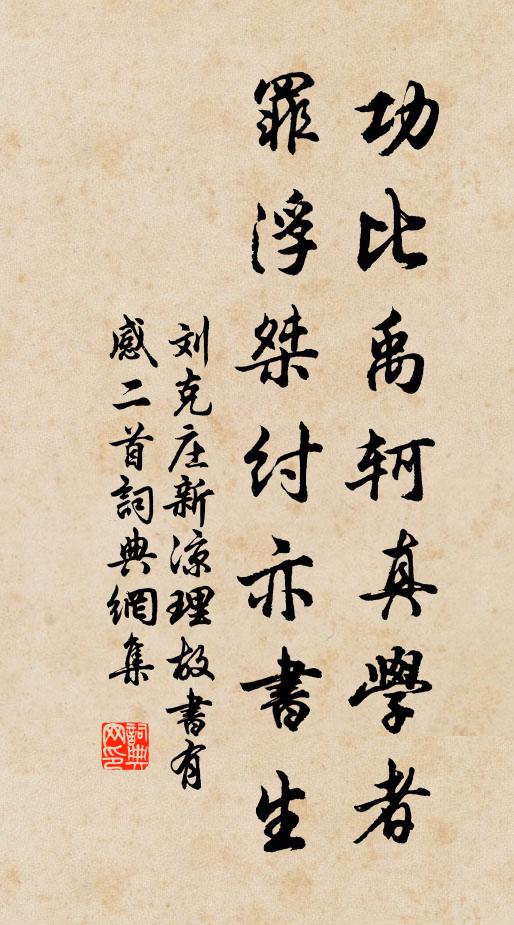 功比禹轲真學者
罪浮桀纣亦書生
刘克庄新涼理故書有
感二首詞典網集
詞典网印